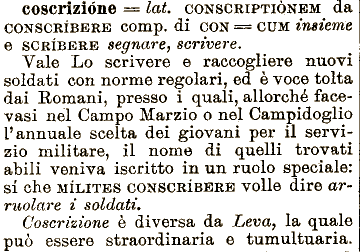 coscrizióne = lat. CONSCRIPTIÒNEM da
CONSCRÌBERE comp. di CON = CUM insieme
e SCRÌBERE segnare, scrivere.
Vale Lo scrivere e raccogliere nuovi
soldati con norme regolari, ed è voce tolta
dai Romani, presso i quali, allorché face-
vasi nel Campo Marzio o nel Campidoglio
l'annuale scelta dei giovani per il servi-
zio militare, il nome di quelli trovati
abili veniva iscritto in un ruolo speciale:
sí che MÍLITES CONSCRÍBERE volle dire ar-
ruolare i soldati.
Coscrizione è diversa da Leva, la quale
può essere straordinaria e tumultuaria.